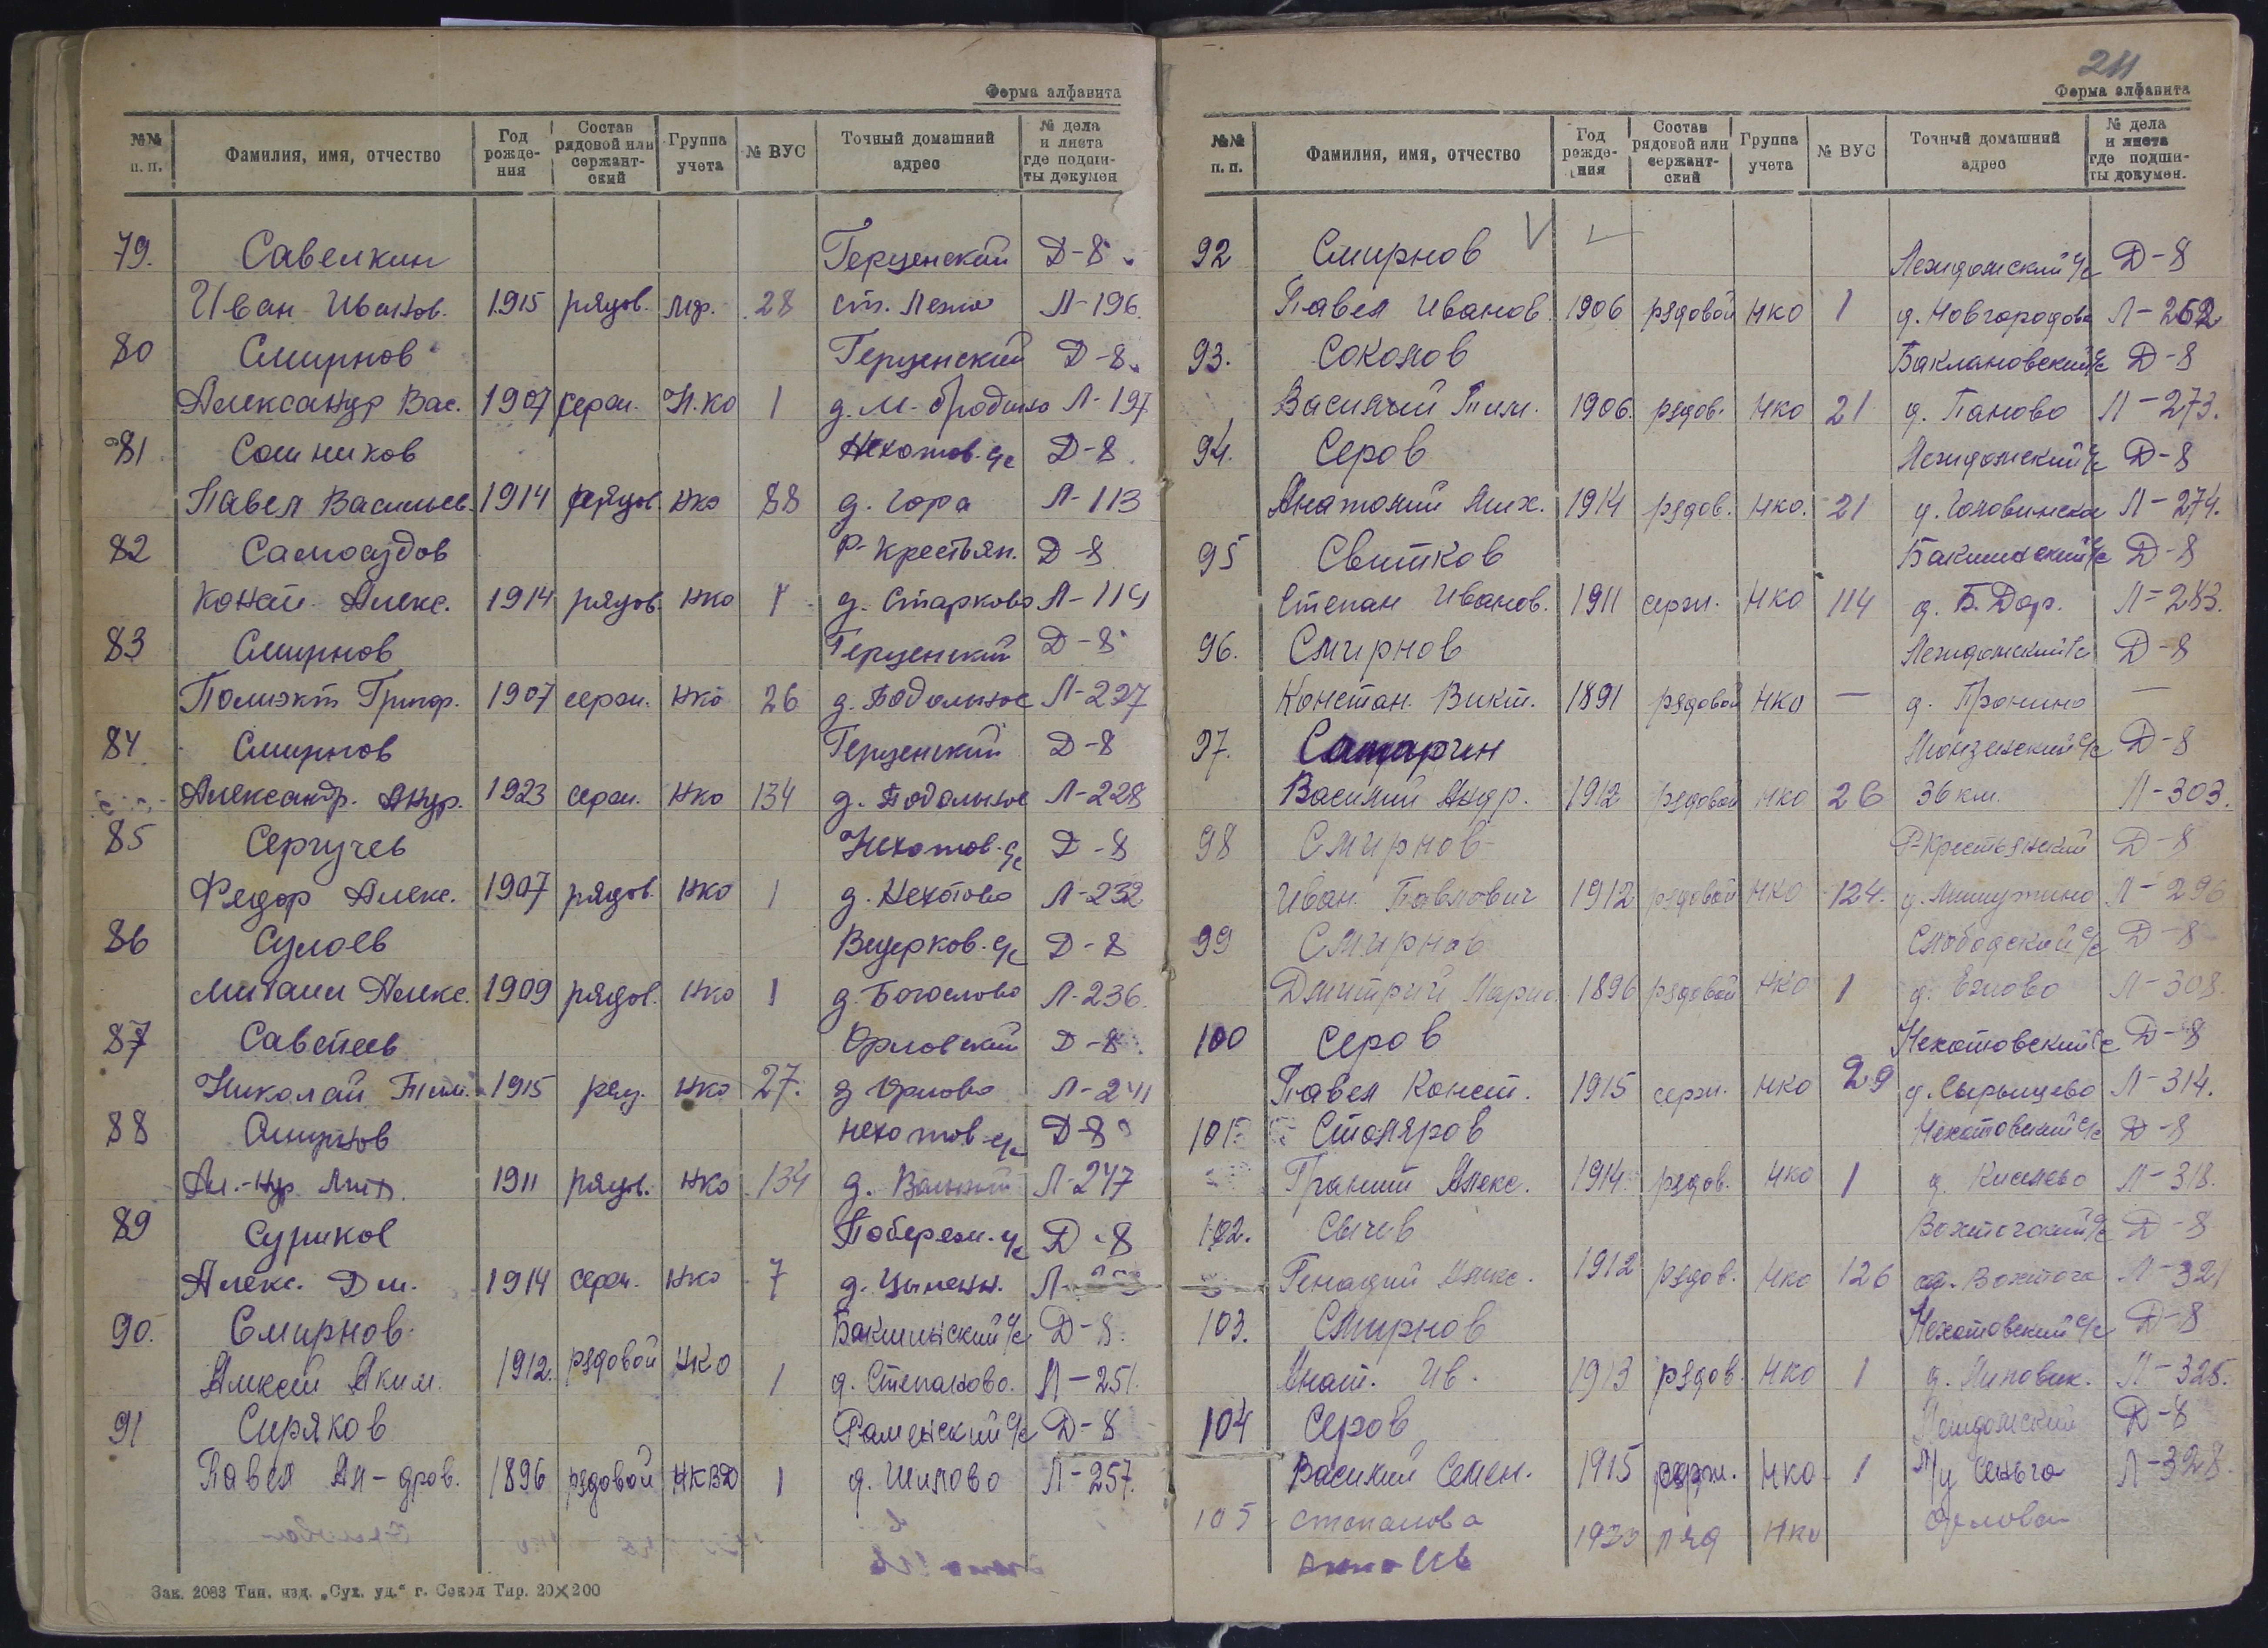 Форма алфавита
№№ п. п. Фамилия, имя, отчество Год рожде-ния Состав рядовой или сержант-ский Группа учета № ВУС Точный домашний адрес № дела и листа где подши-ты докумен
79. Савелкин Герценский Д-8
Иван Иванов. 1915 рядов. 28 ст. Лежа Л-196.
80 Смирнов Герценский Д-8.
Александр Вас. 1907 серж. Н.КО 1 Л-197
81 Сошников Нехотов. с/с Д-8.
Павел Васильев. 1914 рядов. НКО 88 д. Гора Л-113
82 Р-Крестьян. Д-8
Алекс. 1914 рядов. НКО д. Старково Л-114
83 Смирнов Герценский Д-8
Полиэкт Григор. 1907 серж. НКО 26 д. Подольное Л-227
84. Смирнов Герценский Д-8
Александр. Андр. 1923 серж. НКО 134 д. Подольное Л-228
85 Сергучев Нехотов. с/с Д-8
Федор Алекс. 1907 рядов. НКО 1 д. Нехотово Л-232
86 Сулоев Д-8
Михаил Алекс. 1909 рядов. НКО 1 д. Богослово Л-236.
87 Саветеев Орловский Д-8.
Николай Тим. 1915 ряд. НКО 27. д Орлово Л-241
88 Смирнов Нехотов. с/с Д-8
Ал.-ндр 1911 рядов. НКО 134 д. Л-247
89 Суриков Побереж. с/с Д-8
Алекс. Дм. 1914 серж. НКО 7 д. Цыпен. Л-
90. Смирнов Бакшинский с/с Д-8.
Алексей Аким. 1912. рядовой НКО 1 д. Степаново. Л-251.
91 Сиряков Раменский с/с Д-8
Павел Ал-дров. 1896 рядовой НКВД 1 д. Шилово Л-257.
Зак. 2083 Тип. изд. „Сух. уд.“ г. Сокол Тир. 20×200
211
Форма алфавита
№№ п. п. Фамилия, имя, отчество Год рожде-ния Состав рядовой или сержант-ский Группа учета № ВУС Точный домашний адрес № дела и листа где подши-ты докумен.
92 Смирнов Леждомский с/с Д-8
Павел Иванов. 1906 рядовой НКО 1 д. Новгородово Л-262
93. Соколов Баклановский с/с Д-8
Василий Тим. 1906. рядов. НКО 21 д. Паново Л-273.
94. Серов Леждомский с/с Д-8
Анатолий Мих. 1914 рядов. НКО. 21 д. Головинское Л-274.
95 Свитков Бакшинский с/с Д-8
Степан Иванов. 1911 серж. НКО 114 д. Б. Дор. Л-283.
96. Смирнов Леждомский с/с Д-8
Констан. Викт. 1891 рядовой НКО — д. Пронино —
97. Д-8
Василий Андр. 1912 рядовой НКО 26 36 км. Л-303.
98 Смирнов Р-Крестьянский Д-8
Иван Павлович 1912 рядовой НКО 124. Л-296
99 Смирнов Слободской с/с Д-8
Дмитрий 1896 рядовой НКО 1 Л-308.
100 Серов Нехотовский с/с Д-8
Павел Конст. 1915 серж. НКО 29 д. Сырыщево Л-314.
101 Столяров Нехотовский с/с Д-8
Алекс. 1914. рядов. НКО 1 д. Киселево Л-318.
102. Сычев Вохтогский с/с Д-8
Генадий Алекс. 1912 рядов. НКО 126 Вохтога Л-321
103. Смирнов Нехотовский с/с Д-8
Анат. Ив. 1913 рядов. НКО 1 д. Липовик. Л-325.
104 Серов Леждомский Д-8
Василий Семен. 1915 НКО 1 Сеньга Л-328.
105 Степанова Орлово
Анна Ив 1923 ряд НКО